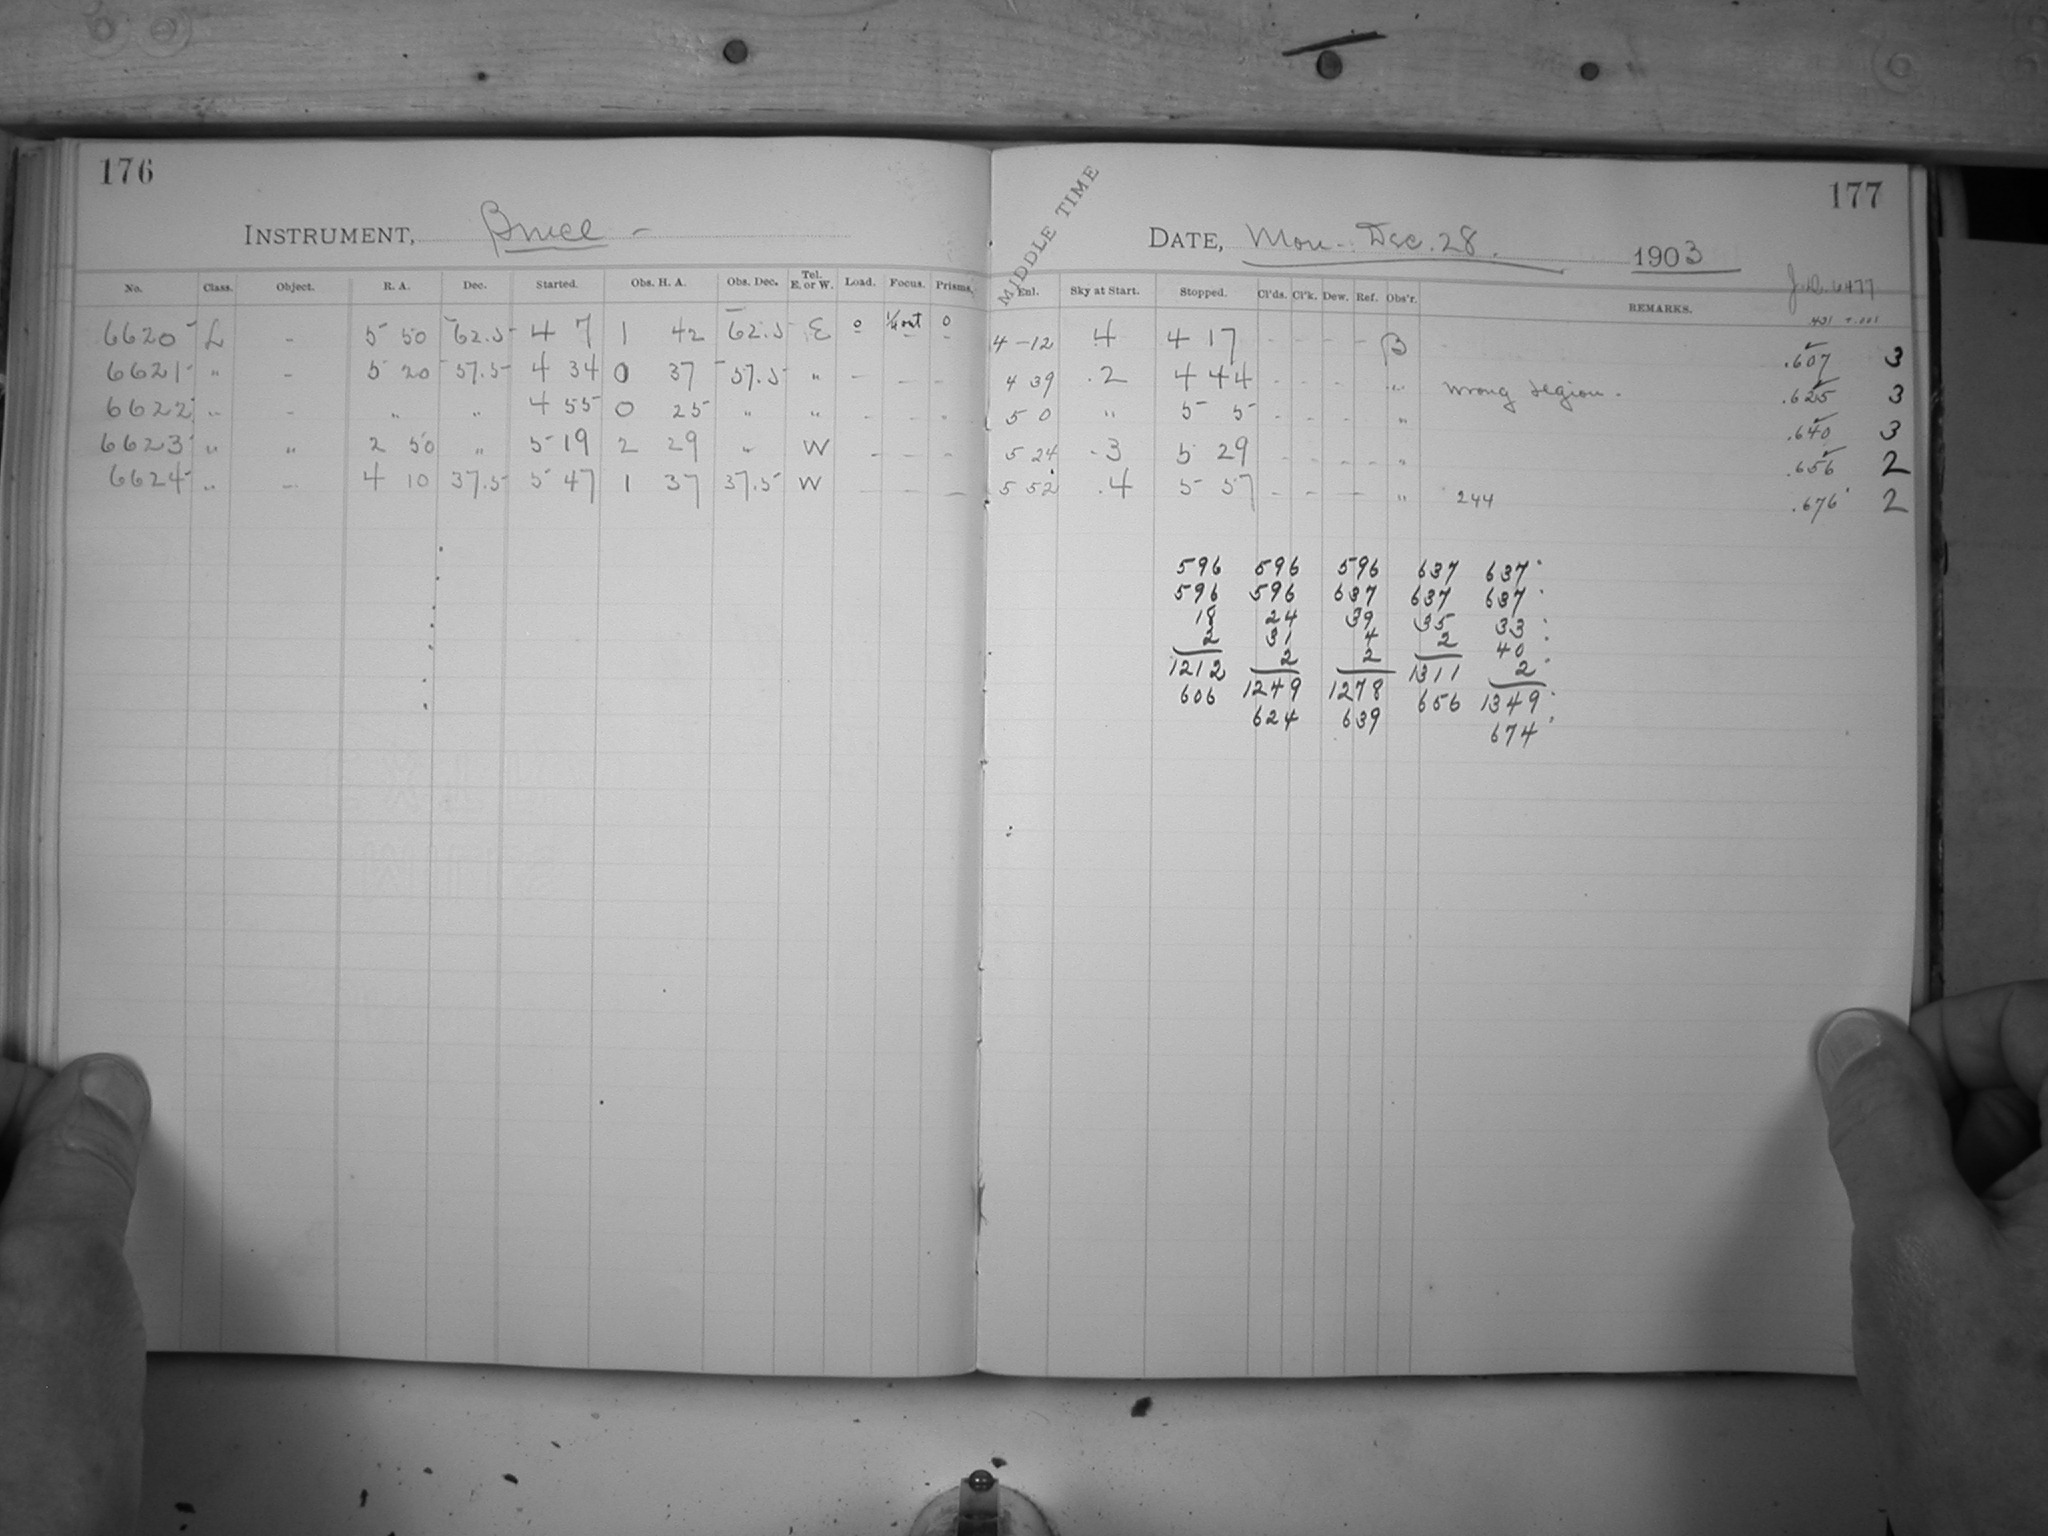 176
INSTRUMENT, Bruce -
No. Class. Object. R. A. Dec. Started. Obs. H. A. Obs. Dec. Tel. E. or W. Load. Focus. Prisms.
6620 L - 5 50 -62.5 4 7 1 42 -62.5 E 0 1/4 out 0
6621 " - 5 20 -57.5 4 34 0 37 -57.5 " - - -
6622 " - " " 4 55 0 25 " " - - -
6623 " " 2 50 " 5 19 2 29 " W - - -
6624 " - 4 10 37.5 5 47 1 37 37.5 W - - -
177
MIDDLE TIME
DATE, Mon. Dec. 28. 1903
J.D. 6477
Enl. Sky at Start. Stopped. Cl'ds. Cl'k. Dew. Ref. Obs'r. REMARKS.
.431 +.001
4-12 4 4 17 - - - - B .607 3
4 39 .2 4 44 - - - " wrong region. .625 3
5 0 " 5 5 - - - " .640 3
5 24 -3 5 29 - - - - " .656 2
5 52 .4 5 57 - - - " 244 .676 2
596 596 596 637 637
596 596 637 637 637
18 24 39 35 33
2 31 4 2 40
1212 2 2 1311 2
606 1249 1278 656 1349
624 639 674